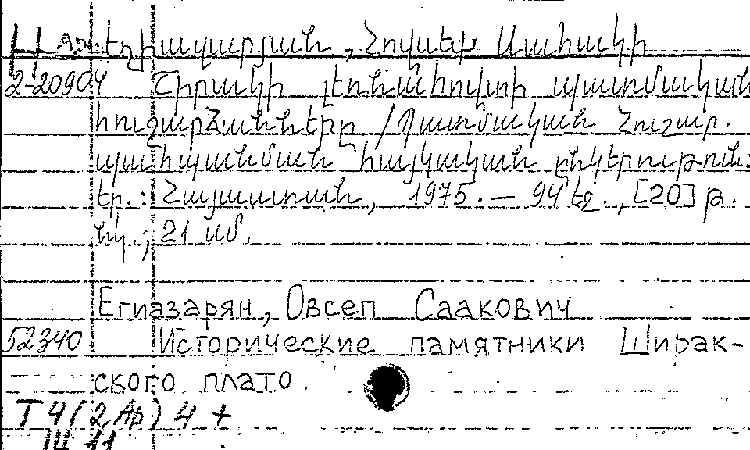 Եղիազարյան, Հովսեփ Սահակի
2-20904 Շիրակի լեռնահովտի պատմական
հուշարձանները / Պատմական հուշար.
պահպանման հայկական ընկերություն:
Եր.: Հայաստան, 1975. — 94 էջ, [20] թ.
նկ.; 21 սմ.
Егиазарян, Овсеп Саакович
52340 Исторические памятники Ширак-
ского плато.
Т4(2Ар)4+
III 11